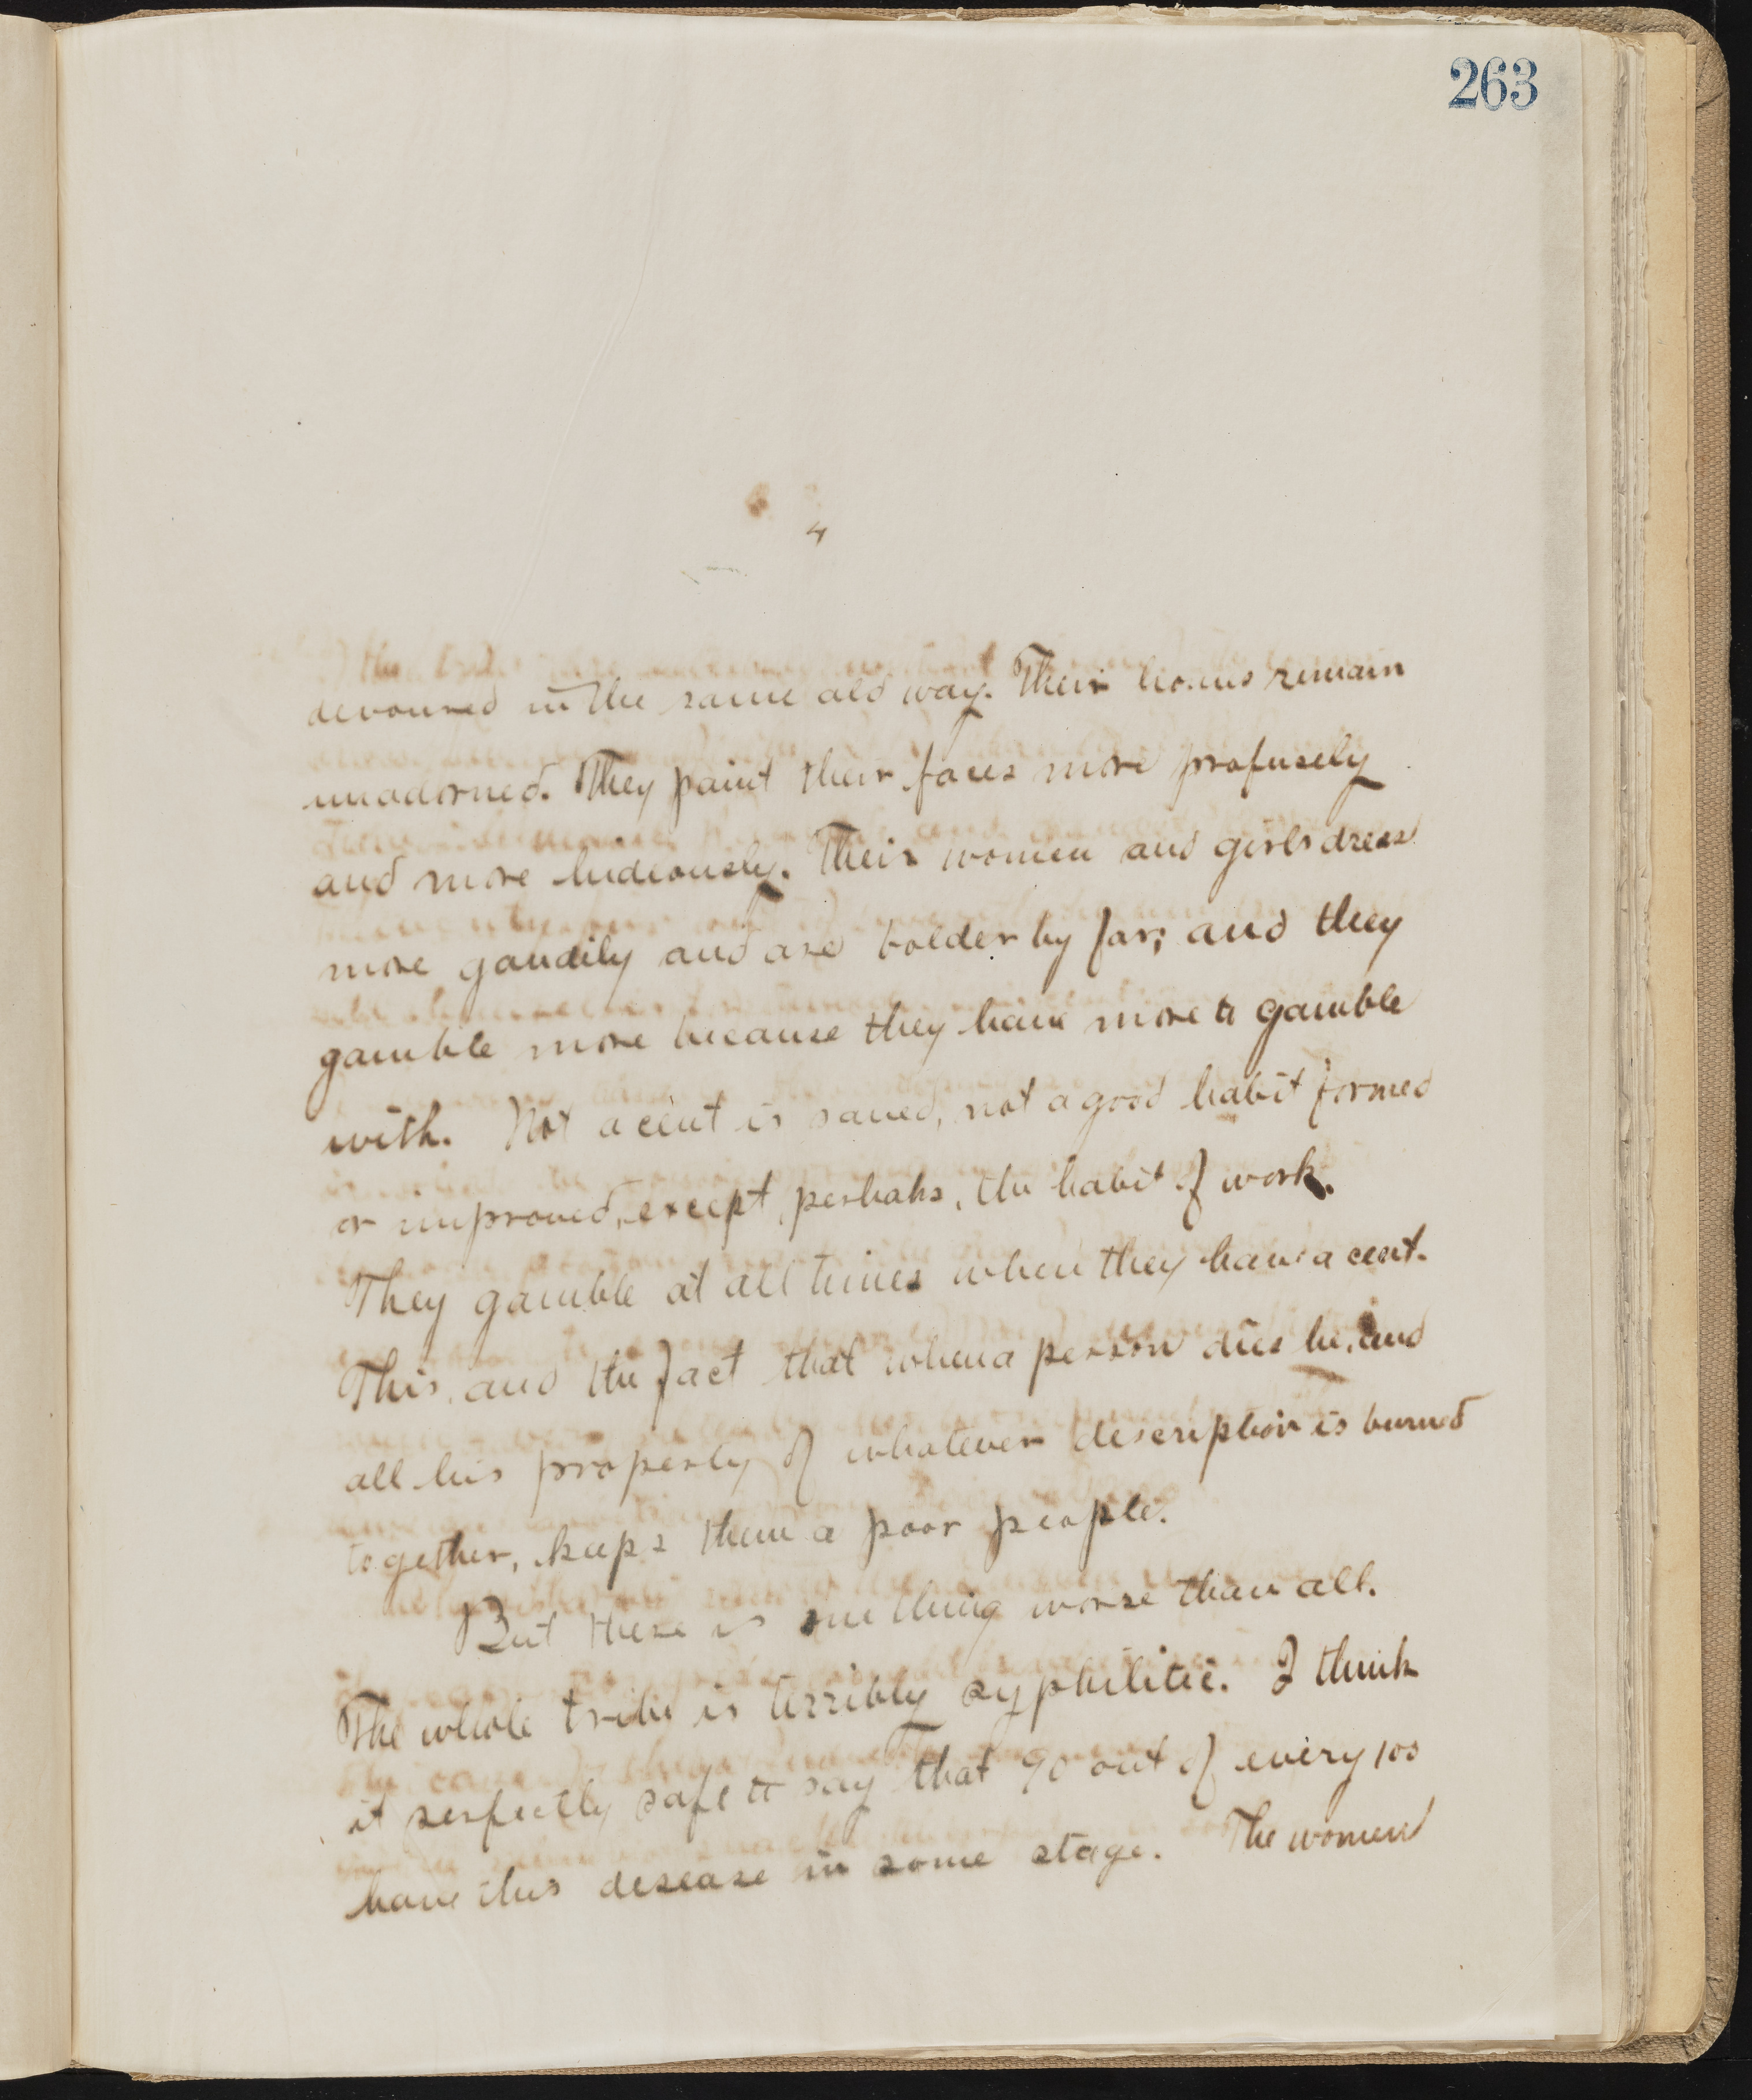 263
4
devoured in the same old way. Their homes remain
unadorned. They paint their faces more profusely
and more hideously. Their women and girls dress
more gaudily and are bolder by far; and they
gamble more because they have more to gamble
with. Not a cent is saved, not a good habit formed
or improved, except, perhaps, the habit of work.
They gamble at all times when they have a cent.
This, and the fact that when a person dies he and
all his property of whatever description is burned
together, keeps them a poor people.
But there is one thing worse than all.
The whole tribe is terribly syphilitic. I think
it perfectly safe to say that 90 out of every 100
have this desease in some stage. The women